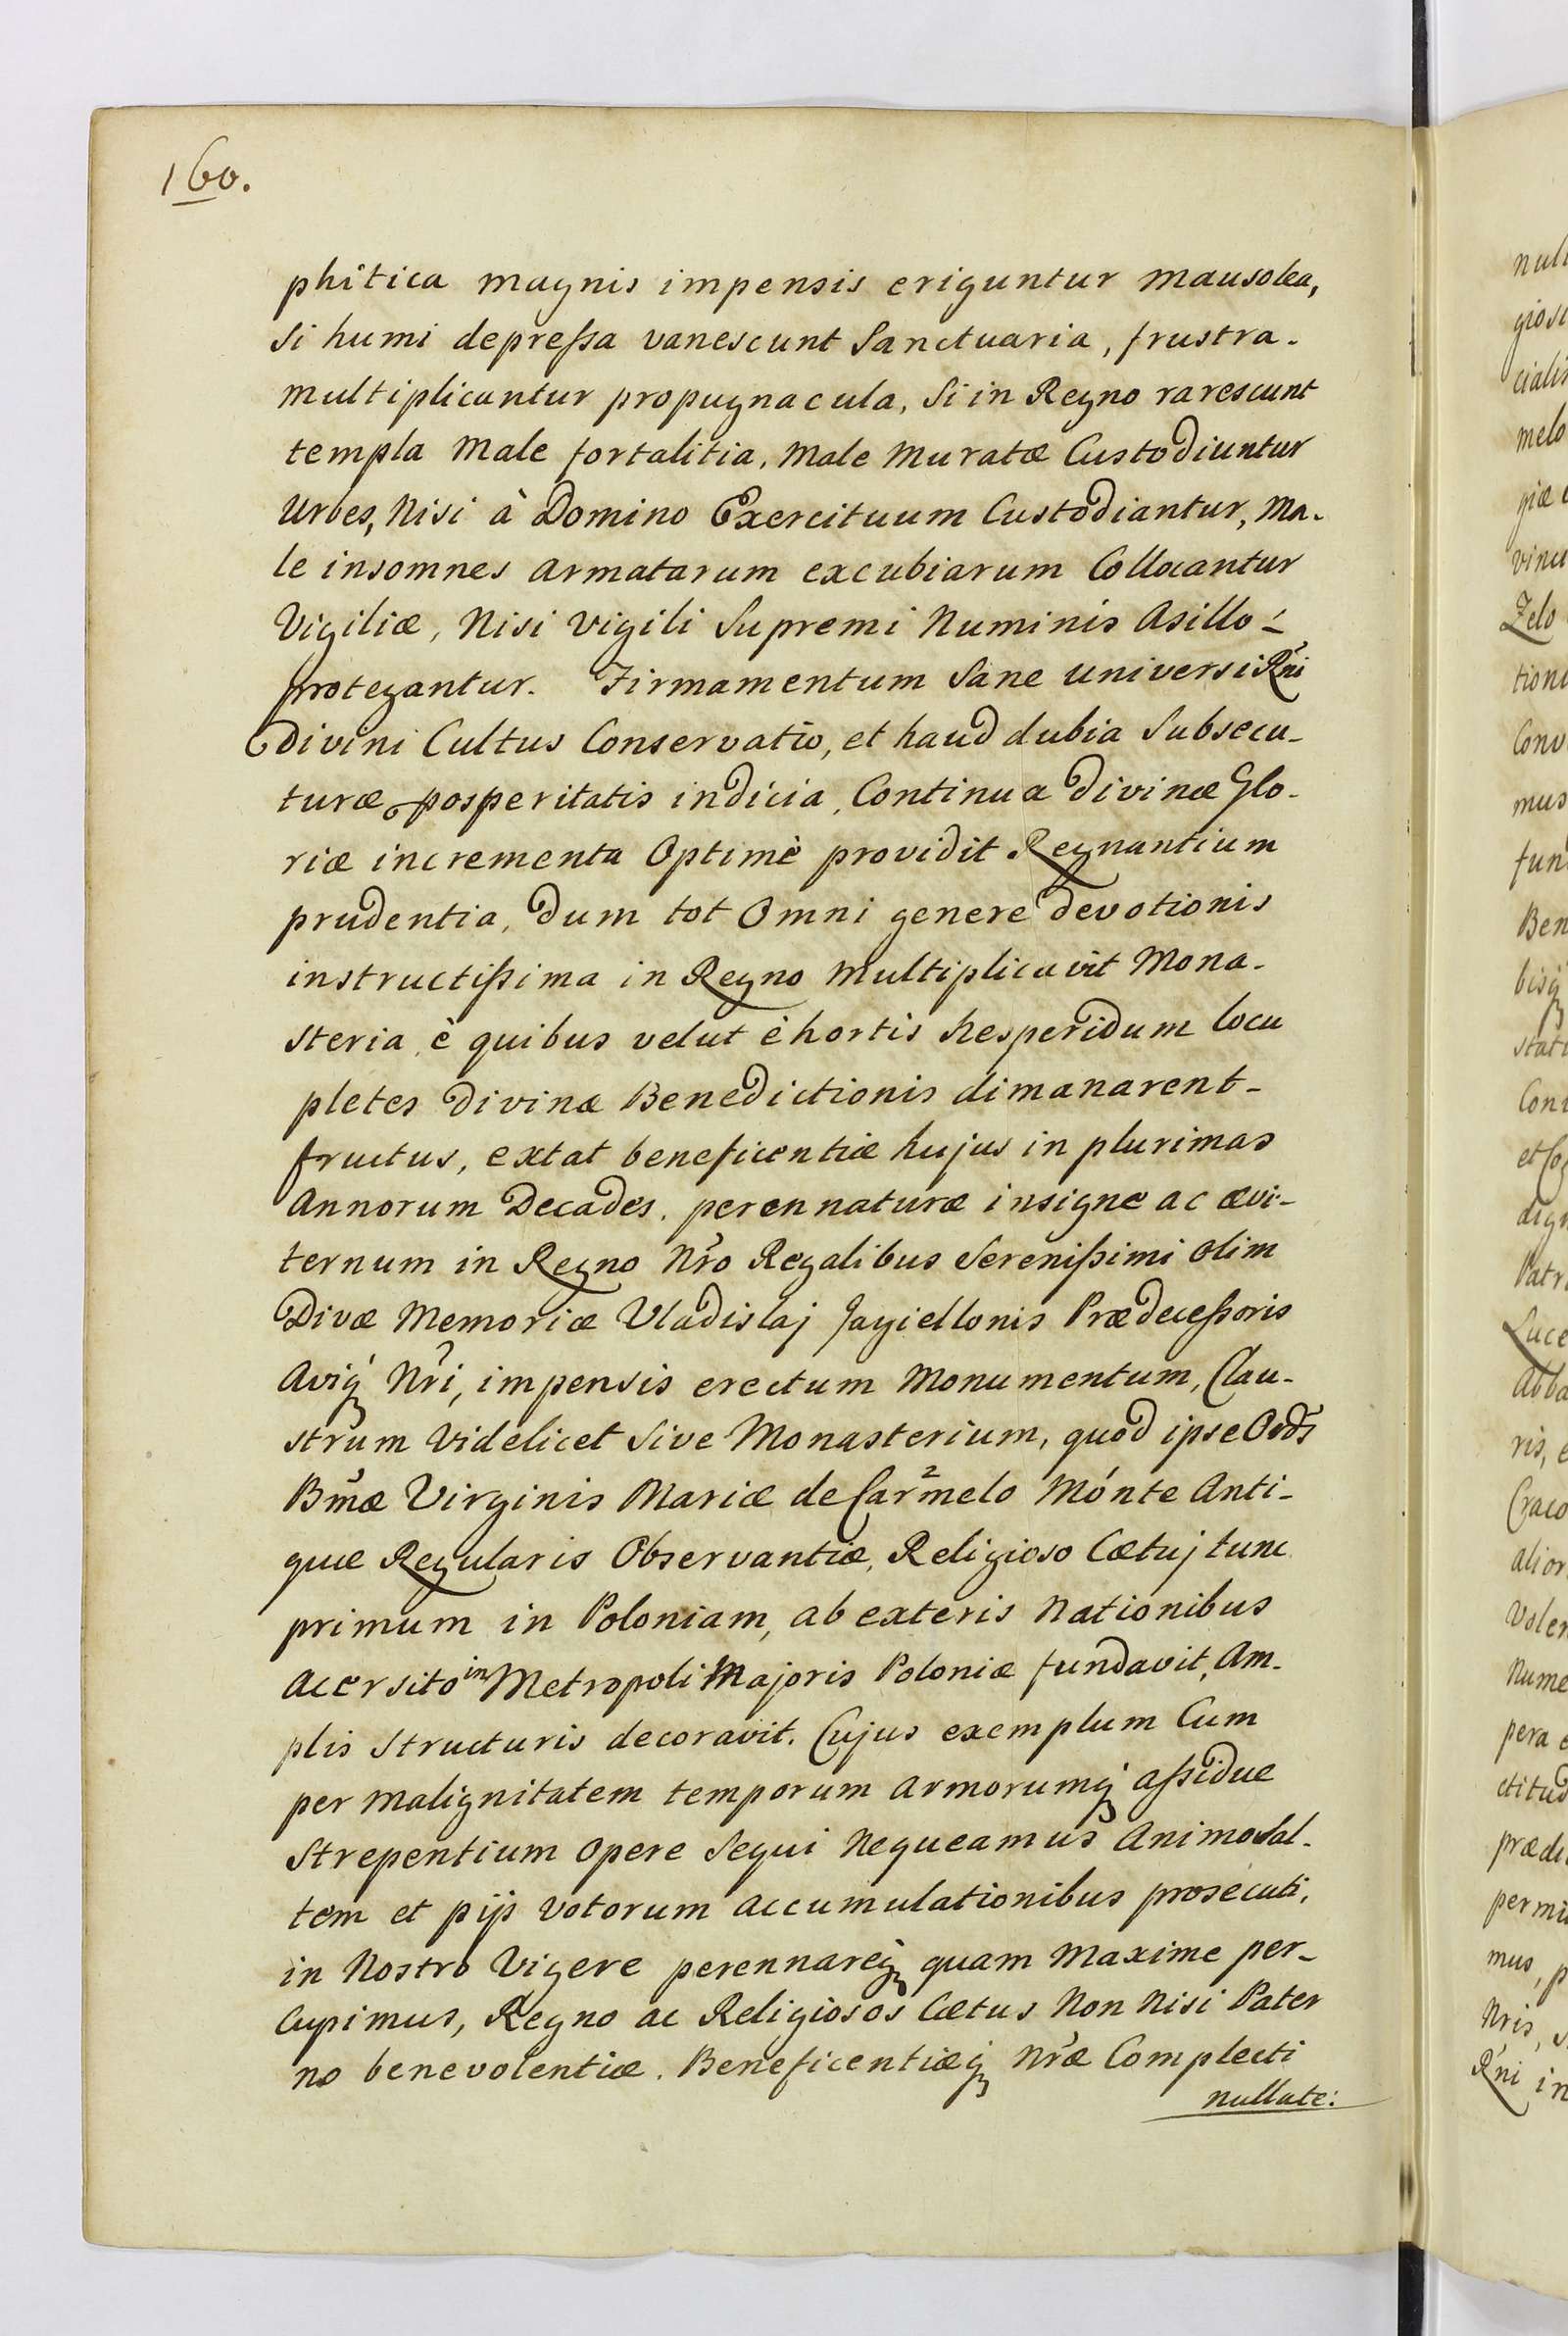 160.
phitica magnis impensis eriguntur mausolea,
si humi depreſsa vanescunt Sanctuaria, frustra-
multiplicantur propugnacula, Si in Regno rarescunt
templa male fortalitia, male muratæ Custodiuntur
Urbes, nisi à Domino Exercituum Custodiantur, ma-
le insomnes armatarum excubiarum Collocantur
Vigiliæ, nisi vigili Supremi Numinis asillo-
protegantur. Firmamentum sane universi Rñi
Divini Cultus Conservatio, et haud dubia subsecu-
turæ posperitatis indicia, Continua divinæ Glo-
riæ incrementa Optimè providit Regnantium
prudentia, dum tot Omni genere devotionis
instructiſsima in Regno multiplicavit Mona-
steria, è quibus velut è hortis hesperidum locu
pletes Divinæ Benedictionis dimanarent-
fructus, extat beneficentiæ hujus in plurimas
annorum Decades. perennaturæ insigne ac ævi-
ternum in Regno Nr̃o Regalibus Sereniſsimi olim
Divæ Memoriæ Vladislaj Jagiellonis Prædeceſsoris
Aviq́ Nr̃i, impensis erectum Monumentum, Clau-
strum Videlicet sive Monasterium, quod ipse Ordĩ
Bmæ̃ Virginis Mariæ de Car²melo Mónte Anti-
quæ Regularis Observantiæ, Religioso Cætuj tunc
primum in Poloniam, ab exteris nationibus
acersito in Metropoli Majoris Poloniæ fundavit, Am-
plis structuris decoravit. Cujus exemplum Cum
per malignitatem temporum armorumq́ aſsidue
strepentium opere sequi nequeamus animo sal-
tem et pijs votorum accumulationibus prosecuti,
in Nostro Vigere perennareq́ quam maxime per-
Cupimus, Regno ac Religiosos Cætus non nisi Pater
no benevolentiæ. Beneficentiæq́ Nr̃æ Complecti
nullate:
giosi
melo
Zelo
Conv
mus
Ben
Patr
Luce
ris, e
Craco
alior
Volen
nume
pera e
ctitud
mus, p
Nris, s
Rñi in